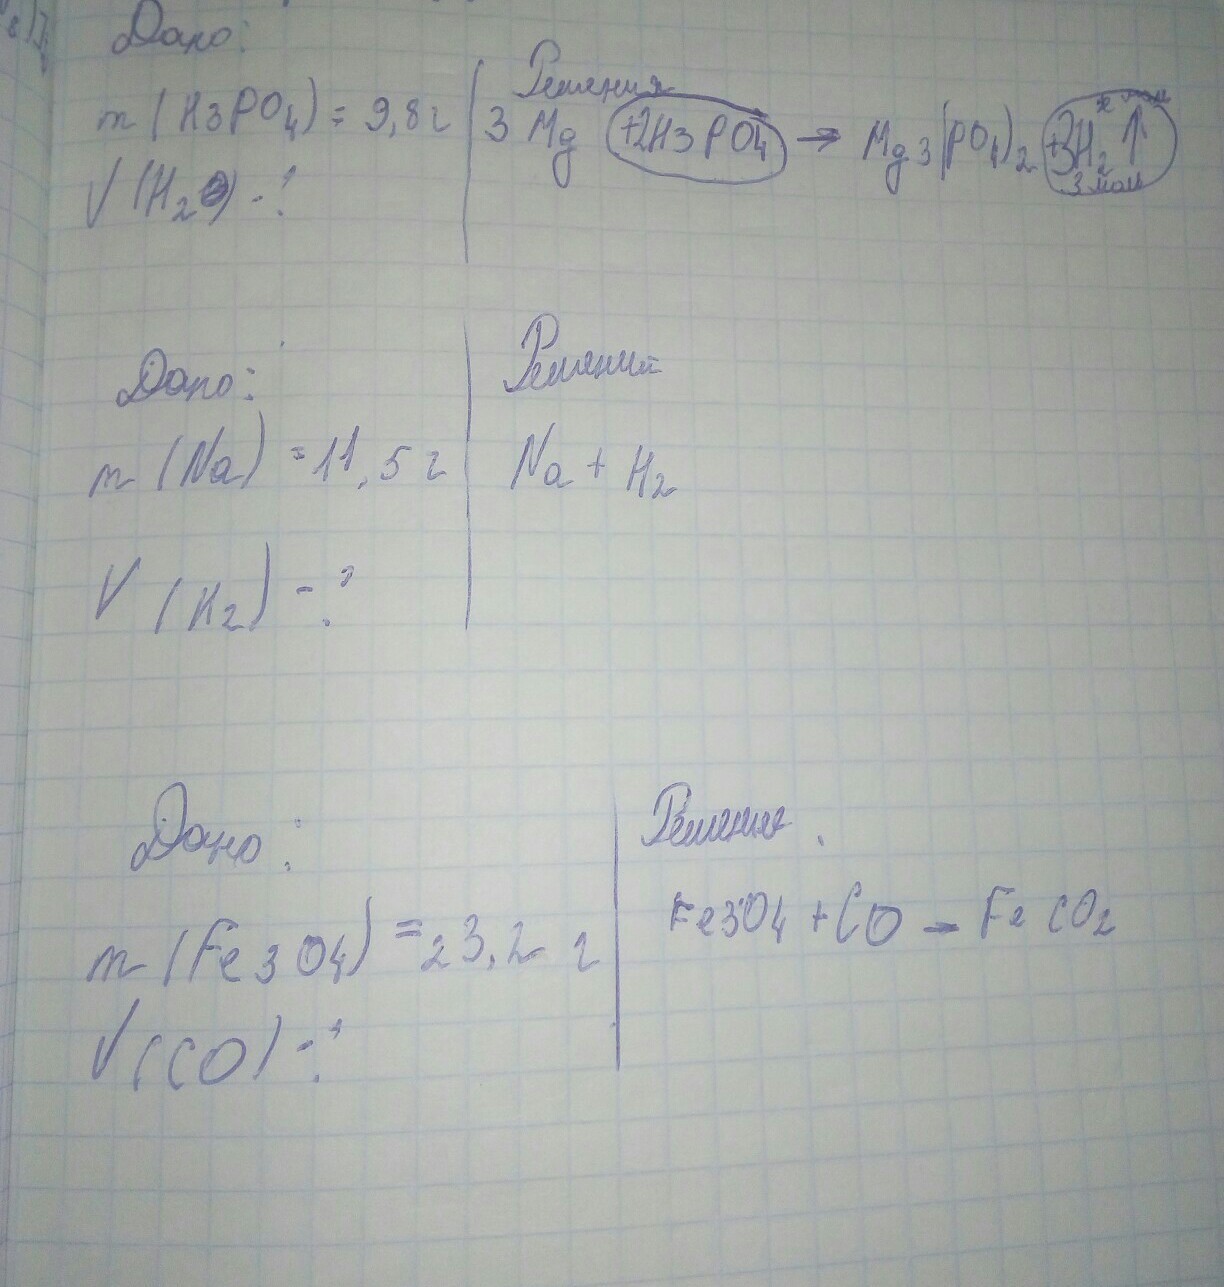 Дано:
m(H3PO4) = 9,8г
V(H2) -?
Решения
x мол
3Mg +2H3PO4 → Mg3(PO4)2 +3H2↑
3 мол
Дано:
m(Na) = 11,5г
V(H2) -?
Решений
Na + H2
Дано:
m(Fe3O4) = 23,2 г
V(CO) -?
Решение.
Fe3O4 + CO → Fe CO2